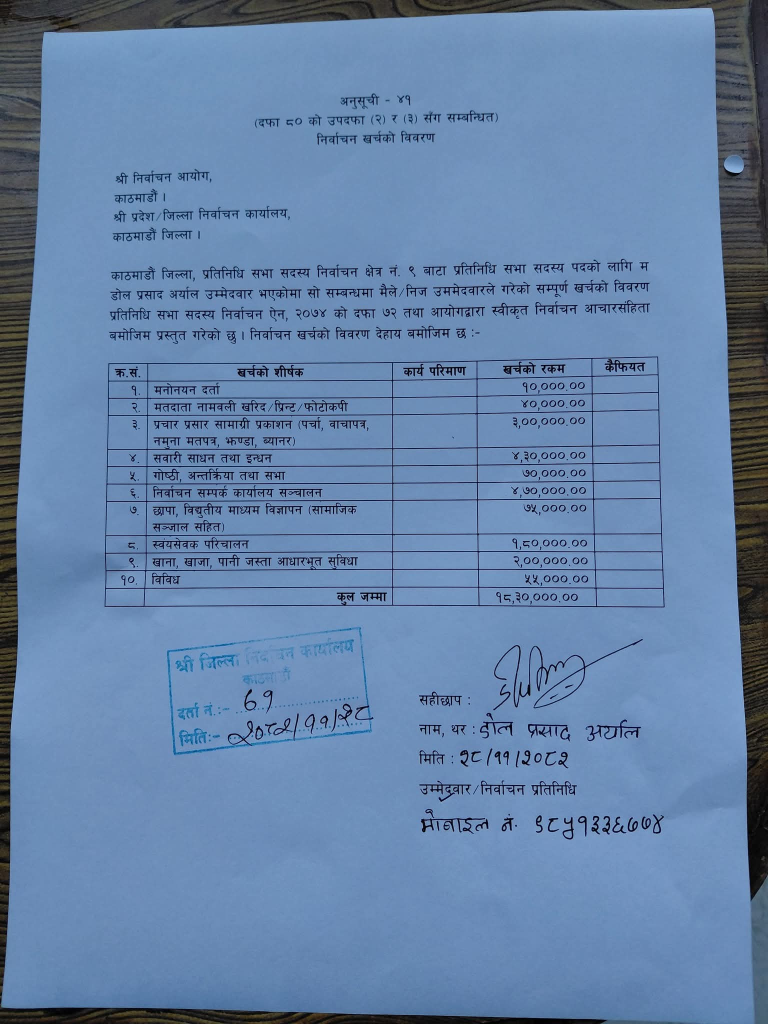 अनुसूची - ४१
(दफा ८० को उपदफा (२) र (३) सँग सम्बन्धित)
निर्वाचन खर्चको विवरण
श्री निर्वाचन आयोग,
काठमाडौं ।
श्री प्रदेश/जिल्ला निर्वाचन कार्यालय,
काठमाडौं जिल्ला ।
काठमाडौं जिल्ला, प्रतिनिधि सभा सदस्य निर्वाचन क्षेत्र नं. ९ बाटा प्रतिनिधि सभा सदस्य पदको लागि म
डोल प्रसाद अर्याल उम्मेदवार भएकोमा सो सम्बन्धमा मैले/निज उममेदवारले गरेको सम्पूर्ण खर्चको विवरण
प्रतिनिधि सभा सदस्य निर्वाचन ऐन, २०७४ को दफा ७२ तथा आयोगद्वारा स्वीकृत निर्वाचन आचारसंहिता
बमोजिम प्रस्तुत गरेको छु । निर्वाचन खर्चको विवरण देहाय बमोजिम छ :-
क्र.सं. खर्चको शीर्षक कार्य परिमाण खर्चको रकम कैफियत
१. मनोनयन दर्ता १०,०००.००
२. मतदाता नामवली खरिद/प्रिन्ट/फोटोकपी ४०,०००.००
३. प्रचार प्रसार सामाग्री प्रकाशन (पर्चा, वाचापत्र, ३,००,०००.००
नमुना मतपत्र, झण्डा, ब्यानर)
४. सवारी साधन तथा इन्धन ४,३०,०००.००
५. गोष्ठी, अन्तर्क्रिया तथा सभा ७०,०००.००
६. निर्वाचन सम्पर्क कार्यालय सञ्चालन ४,७०,०००.००
७. छापा, विद्युतीय माध्यम विज्ञापन (सामाजिक ७५,०००.००
सञ्जाल सहित)
८. स्वयंसेवक परिचालन १,८०,०००.००
९. खाना, खाजा, पानी जस्ता आधारभूत सुविधा २,००,०००.००
१०. विविध ५५,०००.००
कुल जम्मा १८,३०,०००.००
श्री जिल्ला निर्वाचन कार्यालय
काठमाडौं
दर्ता नं.:- ६१
मिति:- २०८२/११/२८
सहीछाप :
नाम, थर : डोल प्रसाद अर्याल
मिति : २८/११/२०८२
उम्मेदवार/निर्वाचन प्रतिनिधि
मोबाइल नं. ९८५१३३६७७४